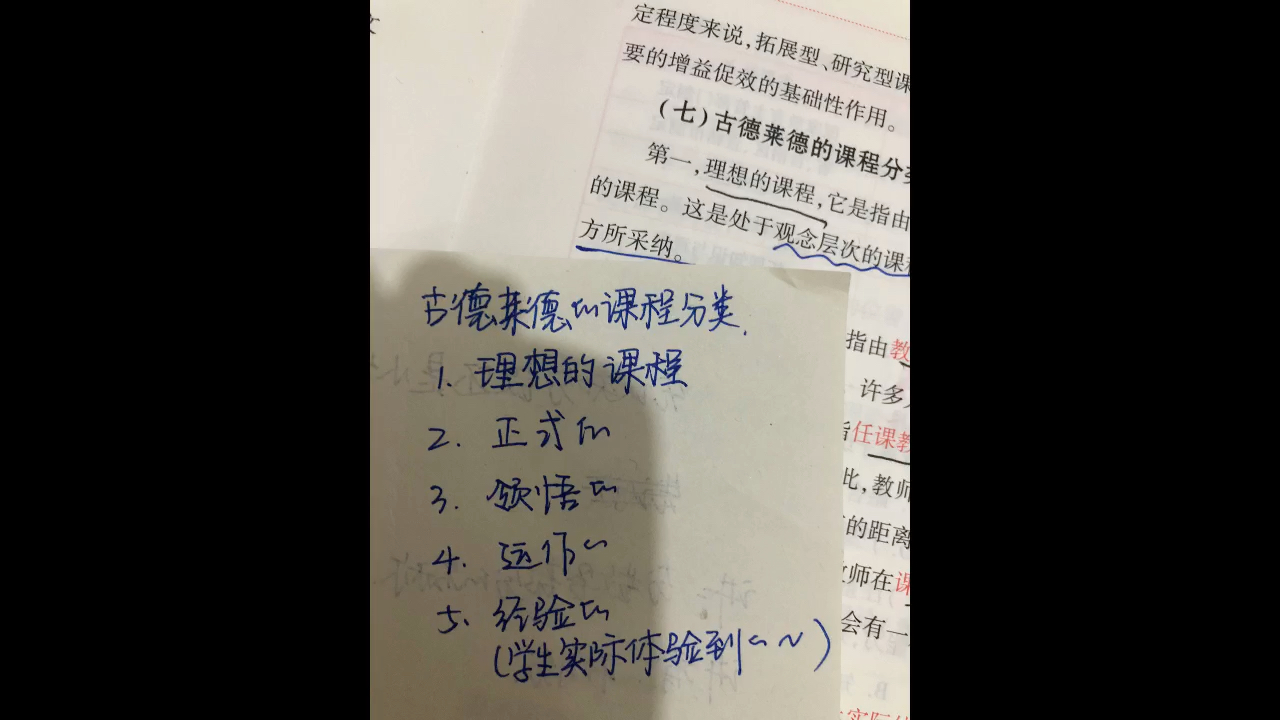 定程度来说,拓展型、研究型课
要的增益促效的基础性作用。
(七)古德莱德的课程分类
第一,理想的课程,它是指由
的课程。这是处于观念层次的课程
方所采纳。
指由教
许多
指任课教
此,教师
的距离
教师在课
会有一
实际体
古德莱德的课程分类.
1. 理想的课程
2. 正式的
3. 领悟的
4. 运作~
5. 经验的
(学生实际体验到的~)